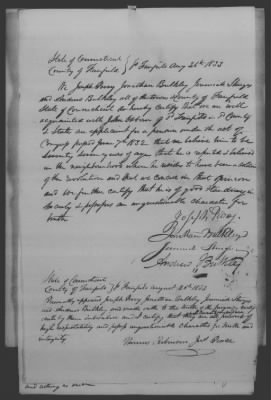 State of Connecticut
County of Fairfield } ss Fairfield Aug 21st 1833
We Joseph Perry Jonathan Bulkley Jeremiah Sturges
and Andrew Bulkley all of the town & County of Fairfield
State of Connecticut do hereby Certify that we are well
acquainted with John Osborn of sd Fairfield in sd County
& State an applicant for a pension under the act of
Congress passed June 7th 1832 that we believe him to be
Seventy four years of age that he is reputed & believed
in the neighbourhood where he resides to have been a soldier
of the revolution and that we concur in that opinion
and We further Certify that he is of good standing in
society & possesses an unquestionable character for
truth
Joseph Perry
Jonathan Bulkley
Jeremiah Sturges
Andrew Bulkley
State of Connecticut
County of Fairfield ss Fairfield August 21st 1833
Personally appeared Joseph Perry Jonathan Bulkley Jeremiah Sturges
and Andrew Bulkley and made oath to the truth of the foregoing
by them and I certify that they are all persons of
high respectability and possess unquestionable characters for truth and
integrity
Just Peace